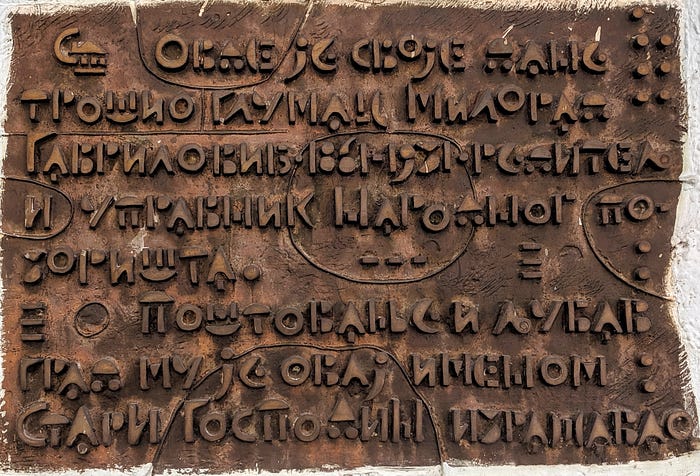 ОВДЕ ЈЕ СВОЈЕ ДАНЕ
ТРОШИО ГЛУМАЦ МИЛОРАД
ГАВРИЛОВИЋ РЕДИТЕЉ
И УПРАВНИК НАРОДНОГ ПО-
ЗОРИШТА.
ПОШТОВАЊЕ И ЉУБАВ
ГРАД МУ ЈЕ ОВАЈ ИМЕНОМ
СТАРИ ГОСПОДИН ИЗРАЖАВАО